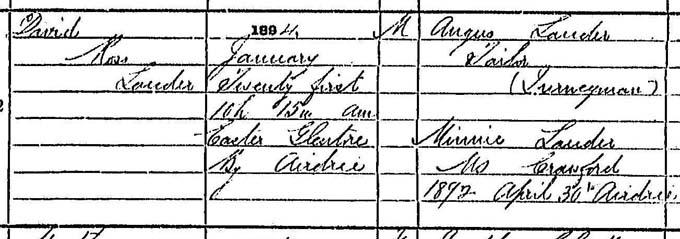 David 1894, M Angus Lauder
Ross January Tailor
Lauder Twenty first (Journeyman)
10h 15m am
Easter Glentore Minnie Lauder
By Airdrie MS Crawford
1892 April 30th Airdrie